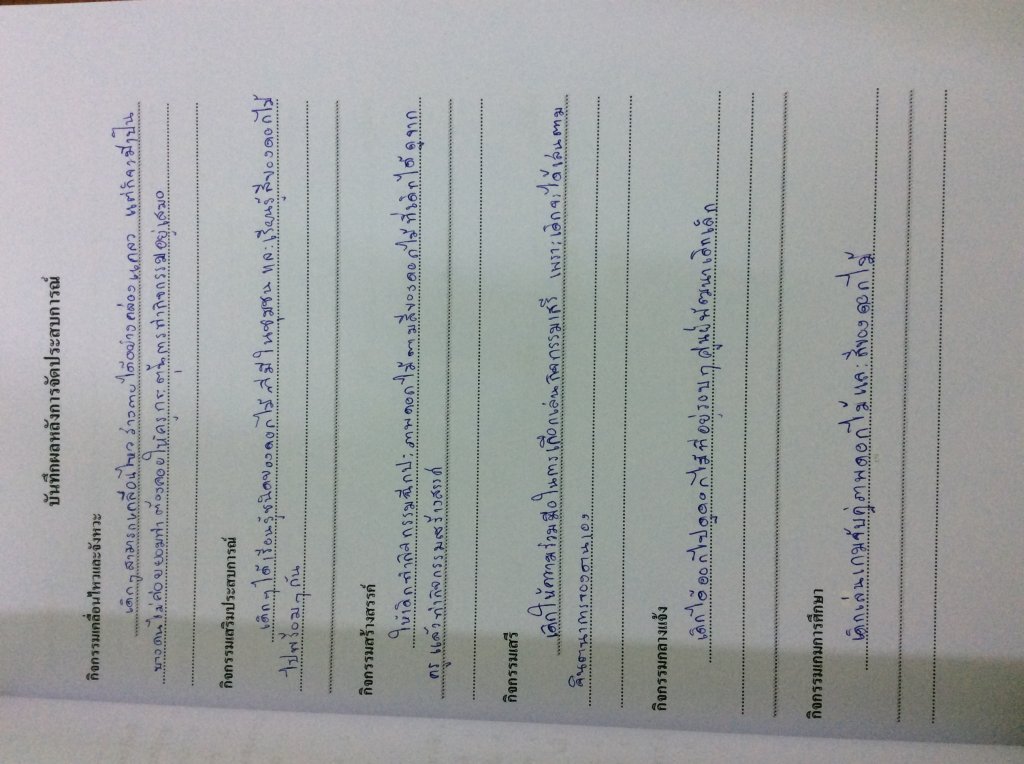 บันทึกผลหลังการจัดประสบการณ์
กิจกรรมเคลื่อนไหวและจังหวะ
เด็กๆ สามารถเคลื่อนไหวร่างกายได้อย่างคล่องแคล่ว แต่ก็จะมีเป็น
บางคนไม่ค่อยยอมทำ ต้องคอยให้ครูกระตุ้นการทำกิจกรรมอยู่เสมอ
กิจกรรมเสริมประสบการณ์
เด็กๆ ได้เรียนรู้ชนิดของดอกไม้ที่มีในชุมชน และเรียนรู้สีของดอกไม้
ไปพร้อมๆ กัน
กิจกรรมสร้างสรรค์
ให้เด็กทำกิจกรรมฉีกปะภาพดอกไม้ตามสีของดอกไม้ที่เด็กได้ดูจาก
ครู แล้วทำกิจกรรมสร้างสรรค์
กิจกรรมเสรี
เด็กให้ความร่วมมือในการเลือกเล่นกิจกรรมเสรี เพราะเด็กจะได้เล่นตาม
จินตนาการของตนเอง
กิจกรรมกลางแจ้ง
เด็กได้ออกไปดูดอกไม้ที่อยู่รอบๆ ศูนย์พัฒนาเด็กเล็ก
กิจกรรมเกมการศึกษา
เด็กเล่นเกมจับคู่ภาพดอกไม้และสีของดอกไม้